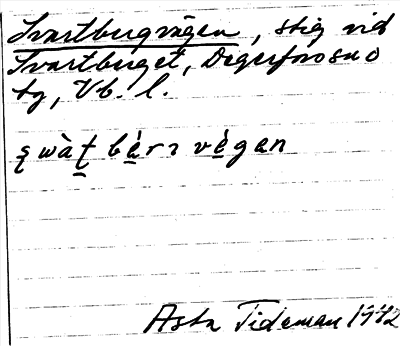 Svartbergvägen, stig vid
Svartberget, Degerfors sn o
tg, Vb. l.
Asta Tideman 1942